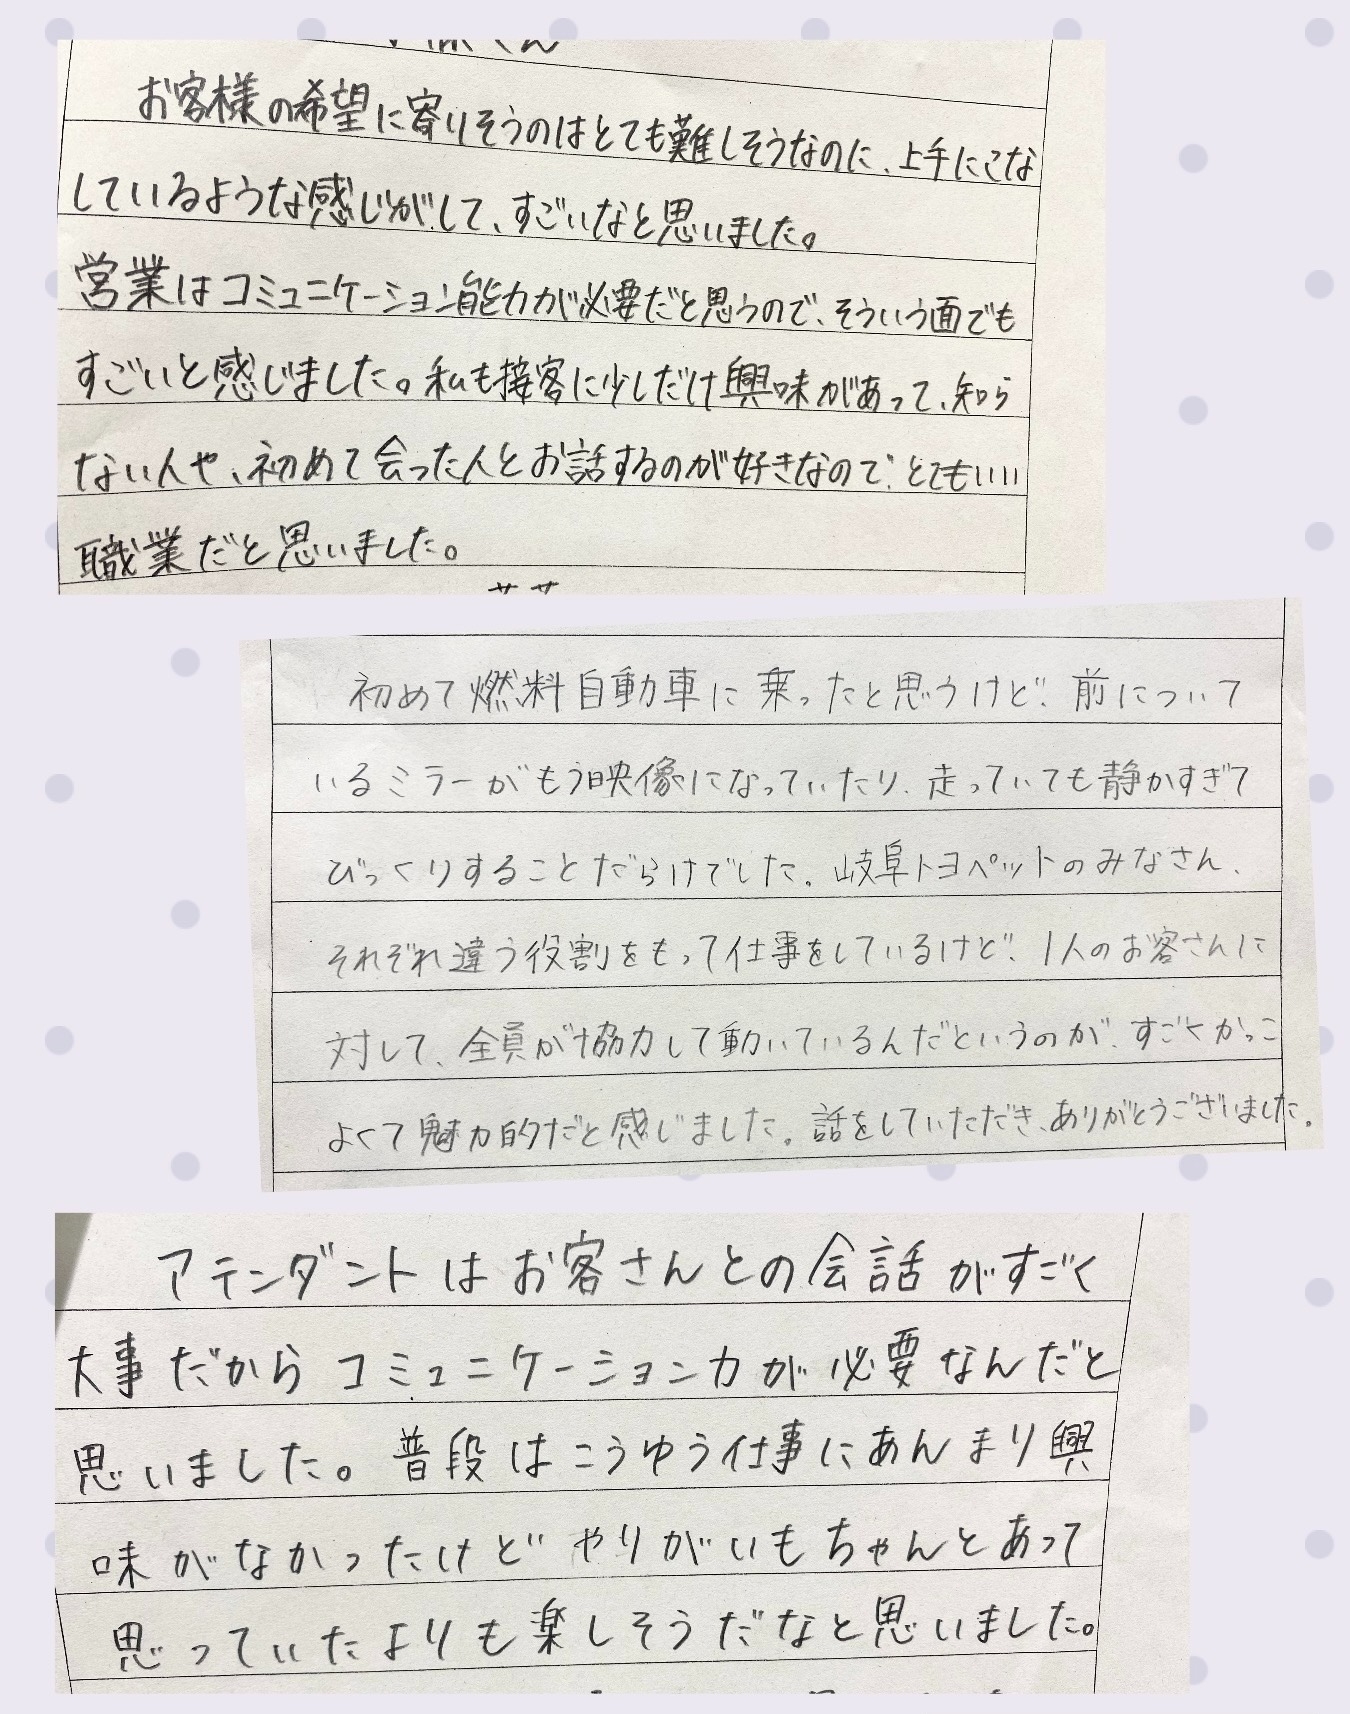 お客様の希望に寄りそうのはとても難しそうなのに、上手にこな
しているような感じがして、すごいなと思いました。
営業はコミュニケーション能力が必要だと思うので、そういう面でも
すごいと感じました。私も接客に少しだけ興味があって、知ら
ない人や、初めて会った人とお話するのが好きなので、とてもいい
職業だと思いました。
初めて燃料自動車に乗ったと思うけど、前について
いるミラーがもう映像になっていたり、走っていても静かすぎて
びっくりすることだらけでした。岐阜トヨペットのみなさん、
それぞれ違う役割をもって仕事をしているけど、1人のお客さんに
対して、全員が協力して動いているんだというのが、すごくかっこ
よくて魅力的だと感じました。話をしていただき、ありがとうございました。
アテンダントはお客さんとの会話がすごく
大事だからコミュニケーション力が必要なんだと
思いました。普段はこうゆう仕事にあんまり興
味がなかったけどやりがいもちゃんとあって
思っていたよりも楽しそうだなと思いました。